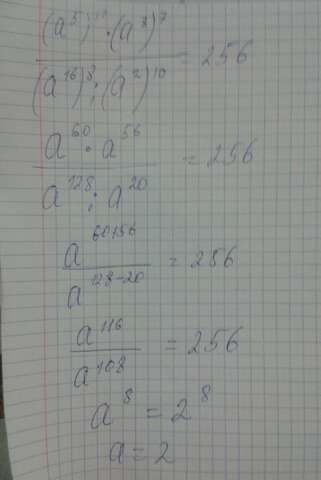 (a⁵)¹²·(a⁸)⁷
(a¹⁶)⁸:(a²)¹⁰ = 256
a⁶⁰·a⁵⁶
a¹²⁸:a²⁰ = 256
a⁶⁰⁺⁵⁶
a¹²⁸⁻²⁰ = 256
a¹¹⁶
a¹⁰⁸ = 256
a⁸ = 2⁸
a = 2